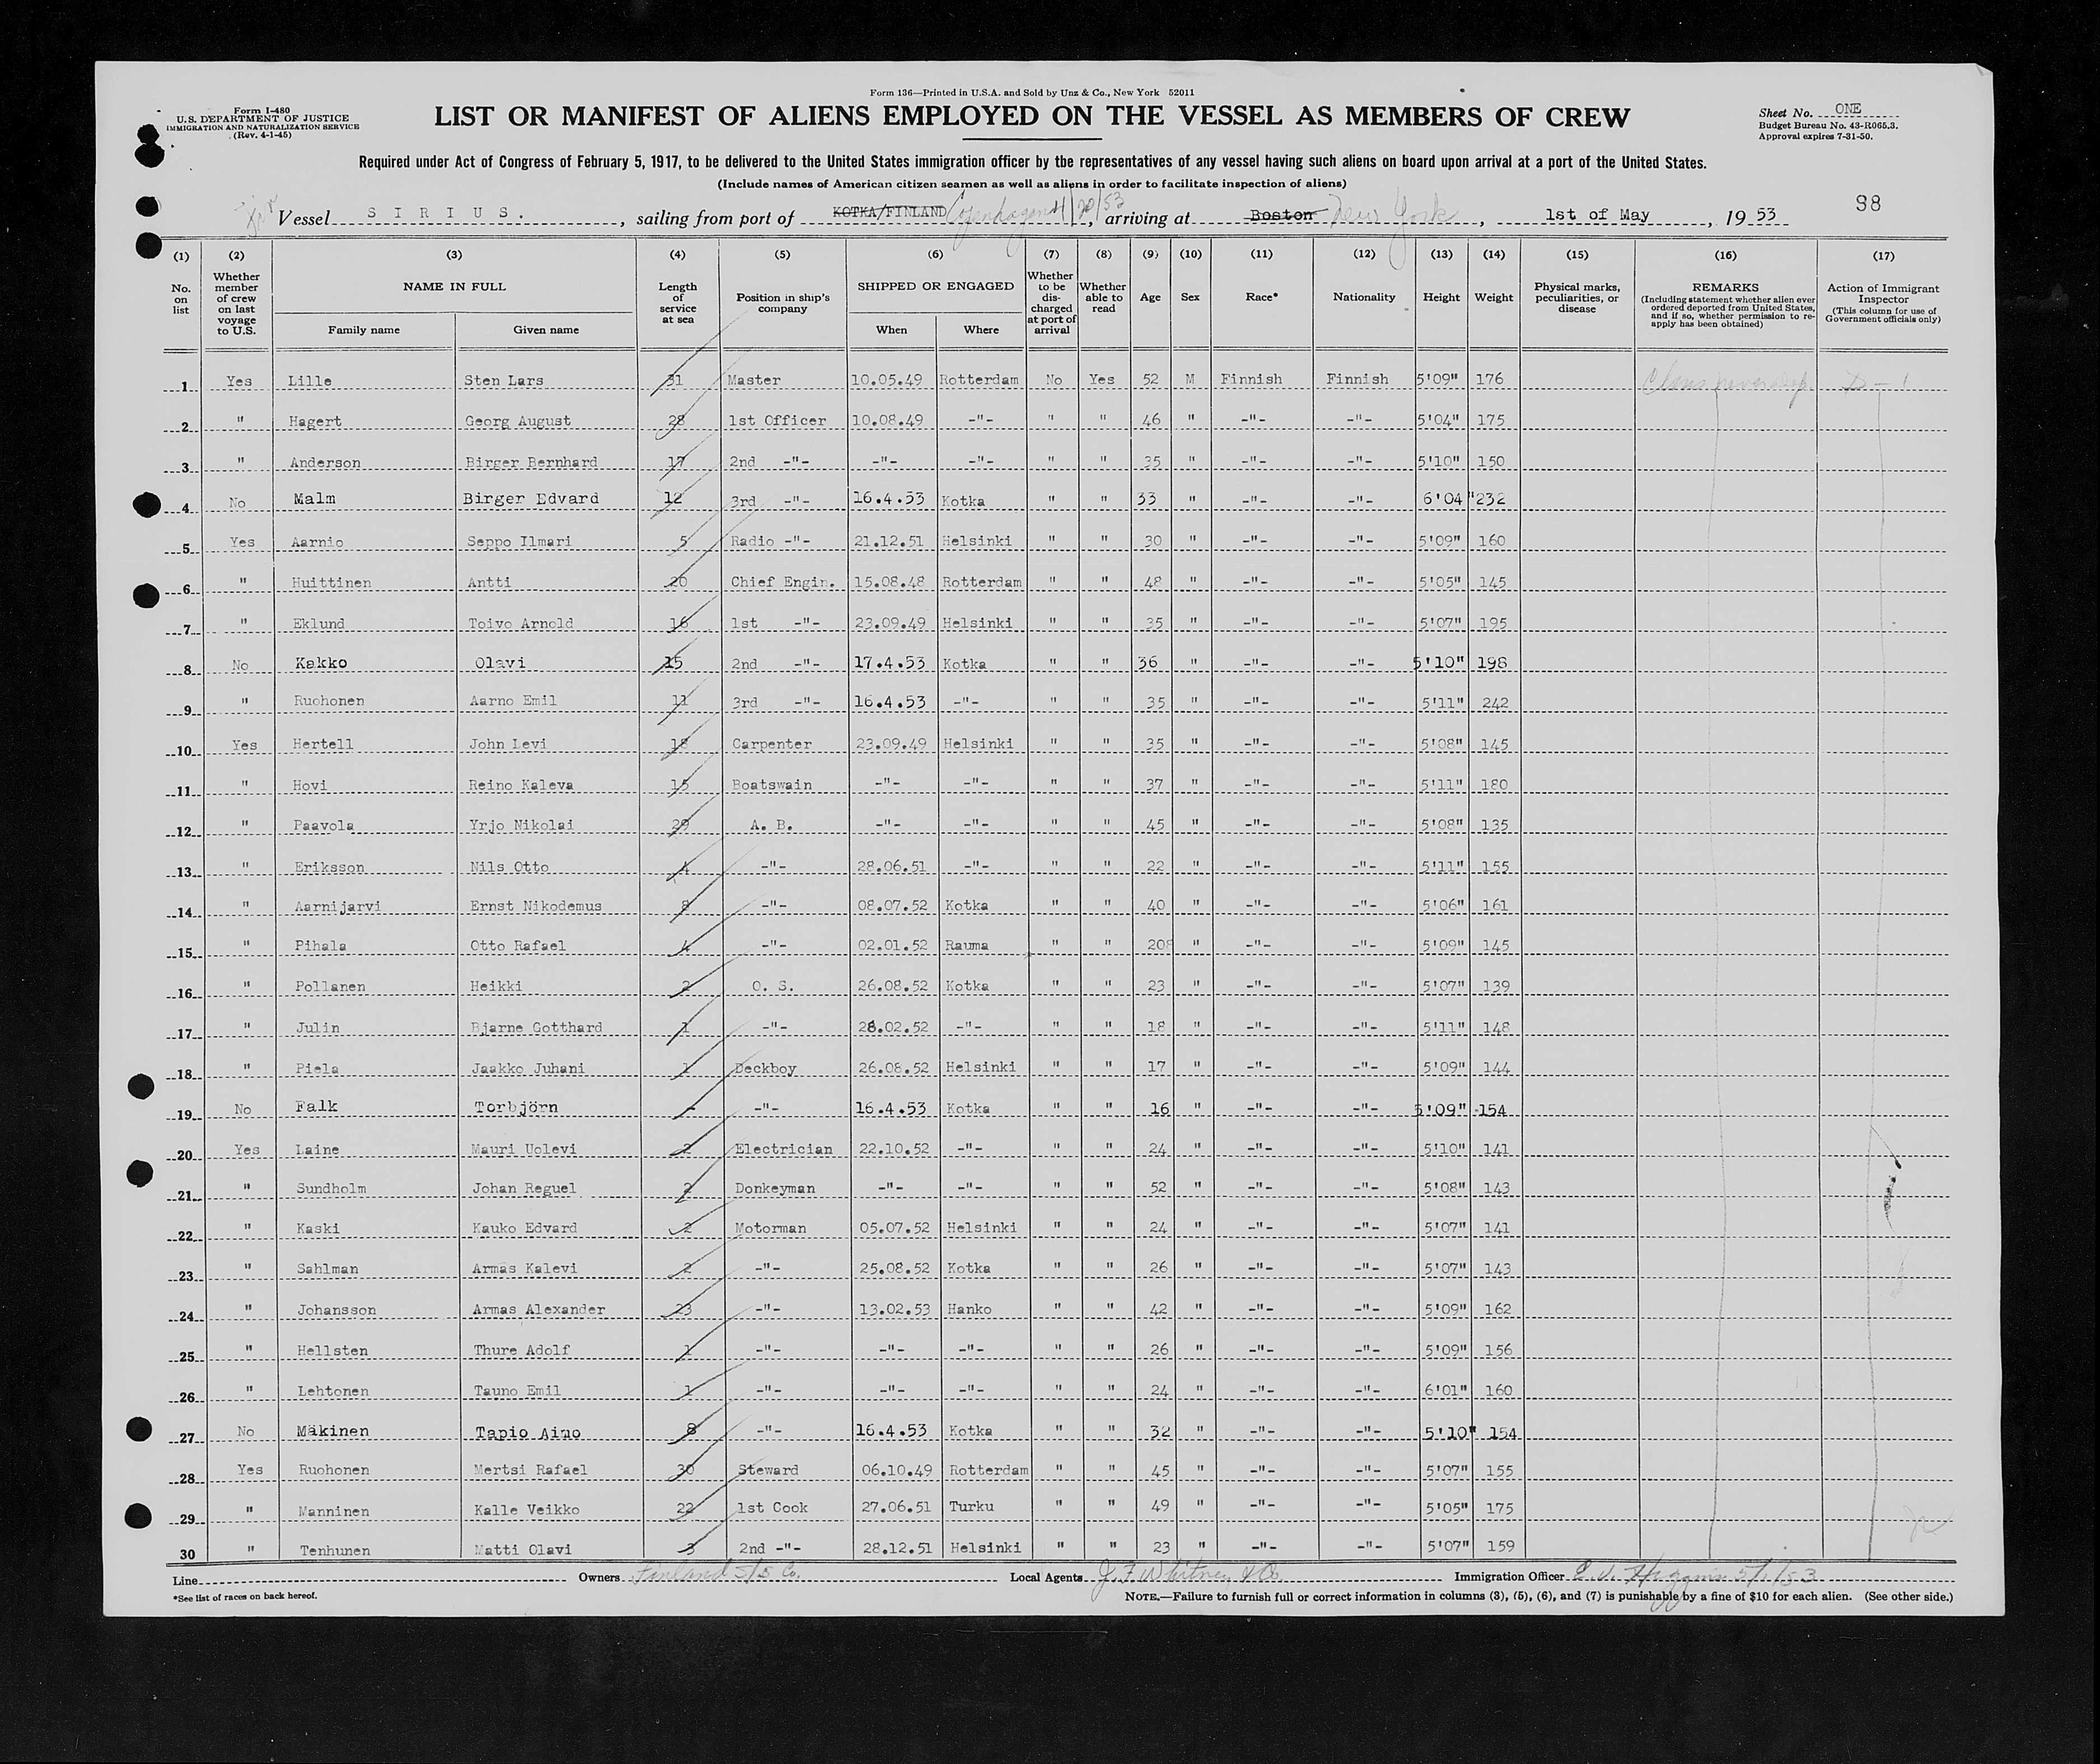 Form 136—Printed in U.S.A. and Sold by Unz & Co., New York 52011
Form I-480
U.S. DEPARTMENT OF JUSTICE
IMMIGRATION AND NATURALIZATION SERVICE
(Rev. 4-1-45)
LIST OR MANIFEST OF ALIENS EMPLOYED ON THE VESSEL AS MEMBERS OF CREW
Sheet No. ONE
Budget Bureau No. 43-R065.3.
Approval expires 7-31-50.
Required under Act of Congress of February 5, 1917, to be delivered to the United States immigration officer by the representatives of any vessel having such aliens on board upon arrival at a port of the United States.
(Include names of American citizen seamen as well as aliens in order to facilitate inspection of aliens)
Vessel S I R I U S . , sailing from port of KOTKA/FINLAND Copenhagen 4/20/53, arriving at Boston New York, 1st of May, 19 53 98
(1) (2) (3) (4) (5) (6) (7) (8) (9) (10) (11) (12) (13) (14) (15) (16) (17)
No. on list
Whether member of crew on last voyage to U.S.
NAME IN FULL
Family name Given name
Length of service at sea
Position in ship's company
SHIPPED OR ENGAGED
When Where
Whether to be discharged at port of arrival
Whether able to read
Age
Sex
Race*
Nationality
Height
Weight
Physical marks, peculiarities, or disease
REMARKS
(Including statement whether alien ever ordered deported from United States, and if so, whether permission to re-apply has been obtained)
Action of Immigrant Inspector
(This column for use of Government officials only)
1 Yes Lille Sten Lars 31 Master 10.05.49 Rotterdam No Yes 52 M Finnish Finnish 5'09" 176 D-1
2 " Hagert Georg August 28 1st Officer 10.08.49 -"- " " 46 " -"- -"- 5'04" 175
3 " Anderson Birger Bernhard 17 2nd -"- -"- -"- " " 35 " -"- -"- 5'10" 150
4 No Malm Birger Edvard 12 3rd -"- 16.4.53 Kotka " " 33 " -"- -"- 6'04" 232
5 Yes Aarnio Seppo Ilmari 5 Radio -"- 21.12.51 Helsinki " " 30 " -"- -"- 5'09" 160
6 " Huittinen Antti 20 Chief Engin. 15.08.48 Rotterdam " " 48 " -"- -"- 5'05" 145
7 " Eklund Toivo Arnold 16 1st -"- 23.09.49 Helsinki " " 35 " -"- -"- 5'07" 195
8 No Kakko Olavi 15 2nd -"- 17.4.53 Kotka " " 36 " -"- -"- 5'10" 198
9 " Ruohonen Aarno Emil 11 3rd -"- 16.4.53 -"- " " 35 " -"- -"- 5'11" 242
10 Yes Hertell John Levi 18 Carpenter 23.09.49 Helsinki " " 35 " -"- -"- 5'08" 145
11 " Hovi Reino Kaleva 15 Boatswain -"- -"- " " 37 " -"- -"- 5'11" 180
12 " Paavola Yrjo Nikolai 29 A. B. -"- -"- " " 45 " -"- -"- 5'08" 135
13 " Eriksson Nils Otto 4 -"- 28.06.51 -"- " " 22 " -"- -"- 5'11" 155
14 " Aarnijarvi Ernst Nikodemus 8 -"- 08.07.52 Kotka " " 40 " -"- -"- 5'06" 161
15 " Pihala Otto Rafael 4 -"- 02.01.52 Rauma " " 20 " -"- -"- 5'09" 145
16 " Pollanen Heikki 2 O. S. 26.08.52 Kotka " " 23 " -"- -"- 5'07" 139
17 " Julin Bjarne Gotthard 1 -"- 28.02.52 -"- " " 18 " -"- -"- 5'11" 148
18 " Piela Jaakko Juhani 1 Deckboy 26.08.52 Helsinki " " 17 " -"- -"- 5'09" 144
19 No Falk Torbjörn - -"- 16.4.53 Kotka " " 16 " -"- -"- 5'09" 154
20 Yes Laine Mauri Uolevi 2 Electrician 22.10.52 -"- " " 24 " -"- -"- 5'10" 141
21 " Sundholm Johan Reguel 2 Donkeyman -"- -"- " " 52 " -"- -"- 5'08" 143
22 " Kaski Kauko Edvard 2 Motorman 05.07.52 Helsinki " " 24 " -"- -"- 5'07" 141
23 " Sahlman Armas Kalevi 2 -"- 25.08.52 Kotka " " 26 " -"- -"- 5'07" 143
24 " Johansson Armas Alexander 23 -"- 13.02.53 Hanko " " 42 " -"- -"- 5'09" 162
25 " Hellsten Thure Adolf 1 -"- -"- -"- " " 26 " -"- -"- 5'09" 156
26 " Lehtonen Tauno Emil 1 -"- -"- -"- " " 24 " -"- -"- 6'01" 160
27 No Mäkinen Tapio Aino 8 -"- 16.4.53 Kotka " " 32 " -"- -"- 5'10" 154
28 Yes Ruohonen Mertsi Rafael 30 Steward 06.10.49 Rotterdam " " 45 " -"- -"- 5'07" 155
29 " Manninen Kalle Veikko 22 1st Cook 27.06.51 Turku " " 49 " -"- -"- 5'05" 175
30 " Tenhunen Matti Olavi 3 2nd -"- 28.12.51 Helsinki " " 23 " -"- -"- 5'07" 159
Line Owners Finland S/S Co. Local Agents J. F. Whitney & Co. Immigration Officer E. J. Higgins 5/1/53
*See list of races on back hereof.
NOTE.—Failure to furnish full or correct information in columns (3), (5), (6), and (7) is punishable by a fine of $10 for each alien. (See other side.)